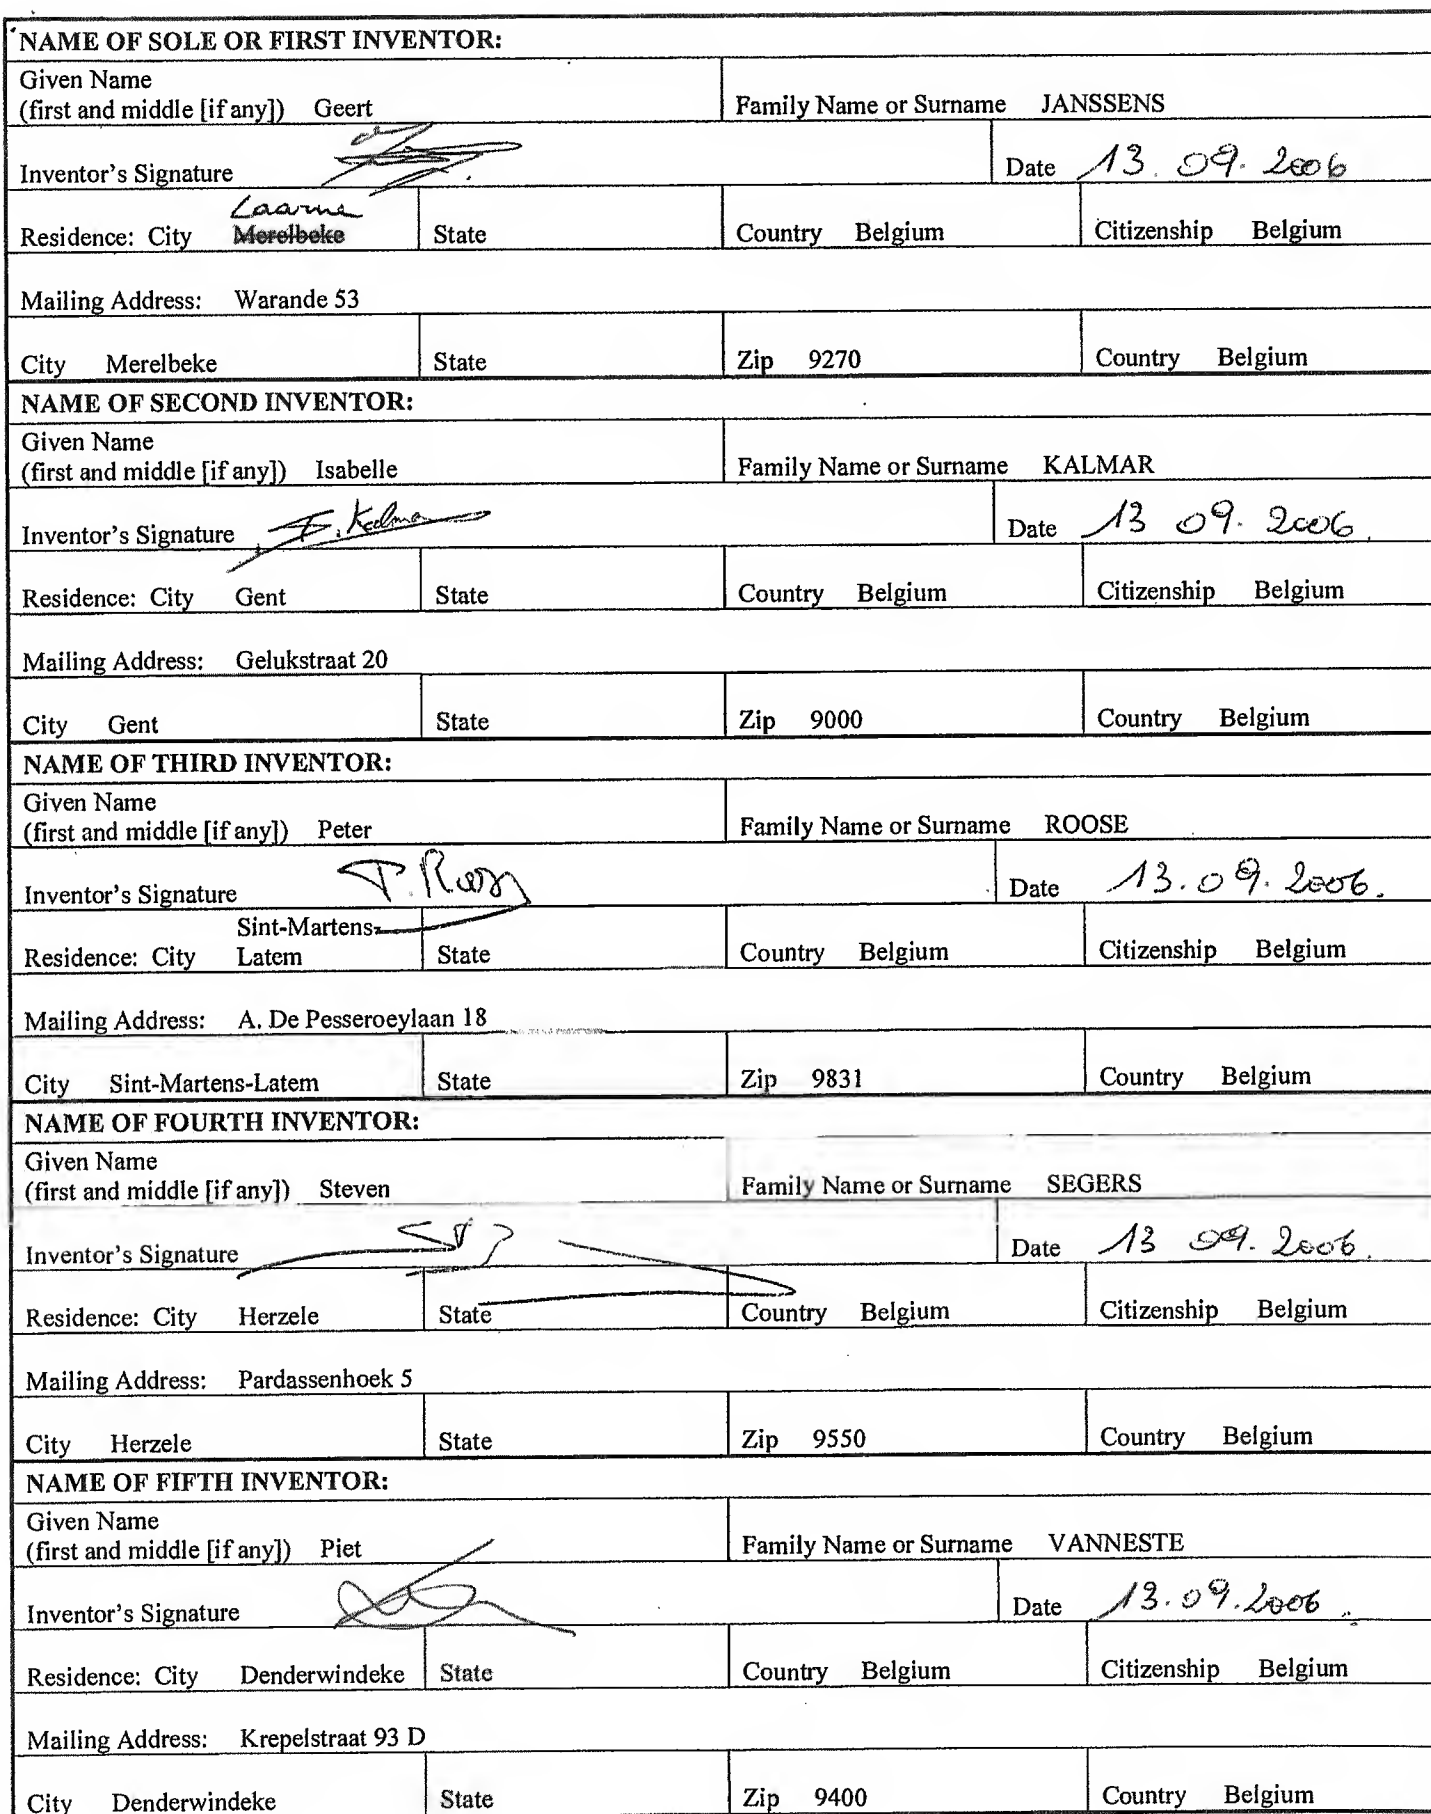 NAME OF SOLE OR FIRST INVENTOR:
Given Name
(first and middle [if any]) Geert Family Name or Surname JANSSENS
Inventor's Signature Date 13.09.2006
Laarne
Residence: City Merelbeke State Country Belgium Citizenship Belgium
Mailing Address: Warande 53
City Merelbeke State Zip 9270 Country Belgium
NAME OF SECOND INVENTOR:
Given Name
(first and middle [if any]) Isabelle Family Name or Surname KALMAR
Inventor's Signature I. Kalmar Date 13 09. 2006.
Residence: City Gent State Country Belgium Citizenship Belgium
Mailing Address: Gelukstraat 20
City Gent State Zip 9000 Country Belgium
NAME OF THIRD INVENTOR:
Given Name
(first and middle [if any]) Peter Family Name or Surname ROOSE
Inventor's Signature P. Roose Date 13.09.2006.
Sint-Martens-
Residence: City Latem State Country Belgium Citizenship Belgium
Mailing Address: A. De Pesseroeylaan 18
City Sint-Martens-Latem State Zip 9831 Country Belgium
NAME OF FOURTH INVENTOR:
Given Name
(first and middle [if any]) Steven Family Name or Surname SEGERS
Inventor's Signature Date 13 09. 2006.
Residence: City Herzele State Country Belgium Citizenship Belgium
Mailing Address: Pardassenhoek 5
City Herzele State Zip 9550 Country Belgium
NAME OF FIFTH INVENTOR:
Given Name
(first and middle [if any]) Piet Family Name or Surname VANNESTE
Inventor's Signature Date 13.09.2006.
Residence: City Denderwindeke State Country Belgium Citizenship Belgium
Mailing Address: Krepelstraat 93 D
City Denderwindeke State Zip 9400 Country Belgium